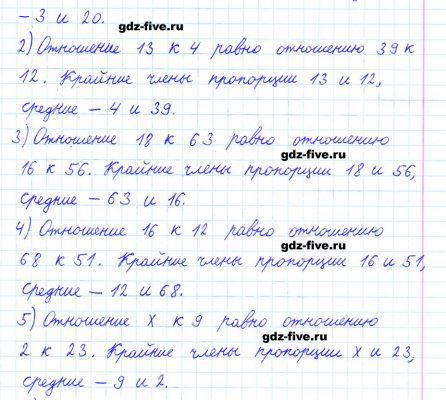 – 3 и 20.
gdz-five.ru
2) Отношение 13 к 4 равно отношению 39 к
12. Крайние члены пропорции 13 и 12,
средние – 4 и 39.
gdz-five.ru
3) Отношение 18 к 63 равно отношению
gdz-five.ru
16 к 56. Крайние члены пропорции 18 и 56,
средние – 63 и 16.
gdz-five.ru
4) Отношение 16 к 12 равно отношению
gdz-five.ru
68 к 51. Крайние члены пропорции 16 и 51,
средние – 12 и 68.
5) Отношение x к 9 равно отношению
gdz-five.ru
2 к 23. Крайние члены пропорции x и 23,
средние – 9 и 2.
gdz-five.ru